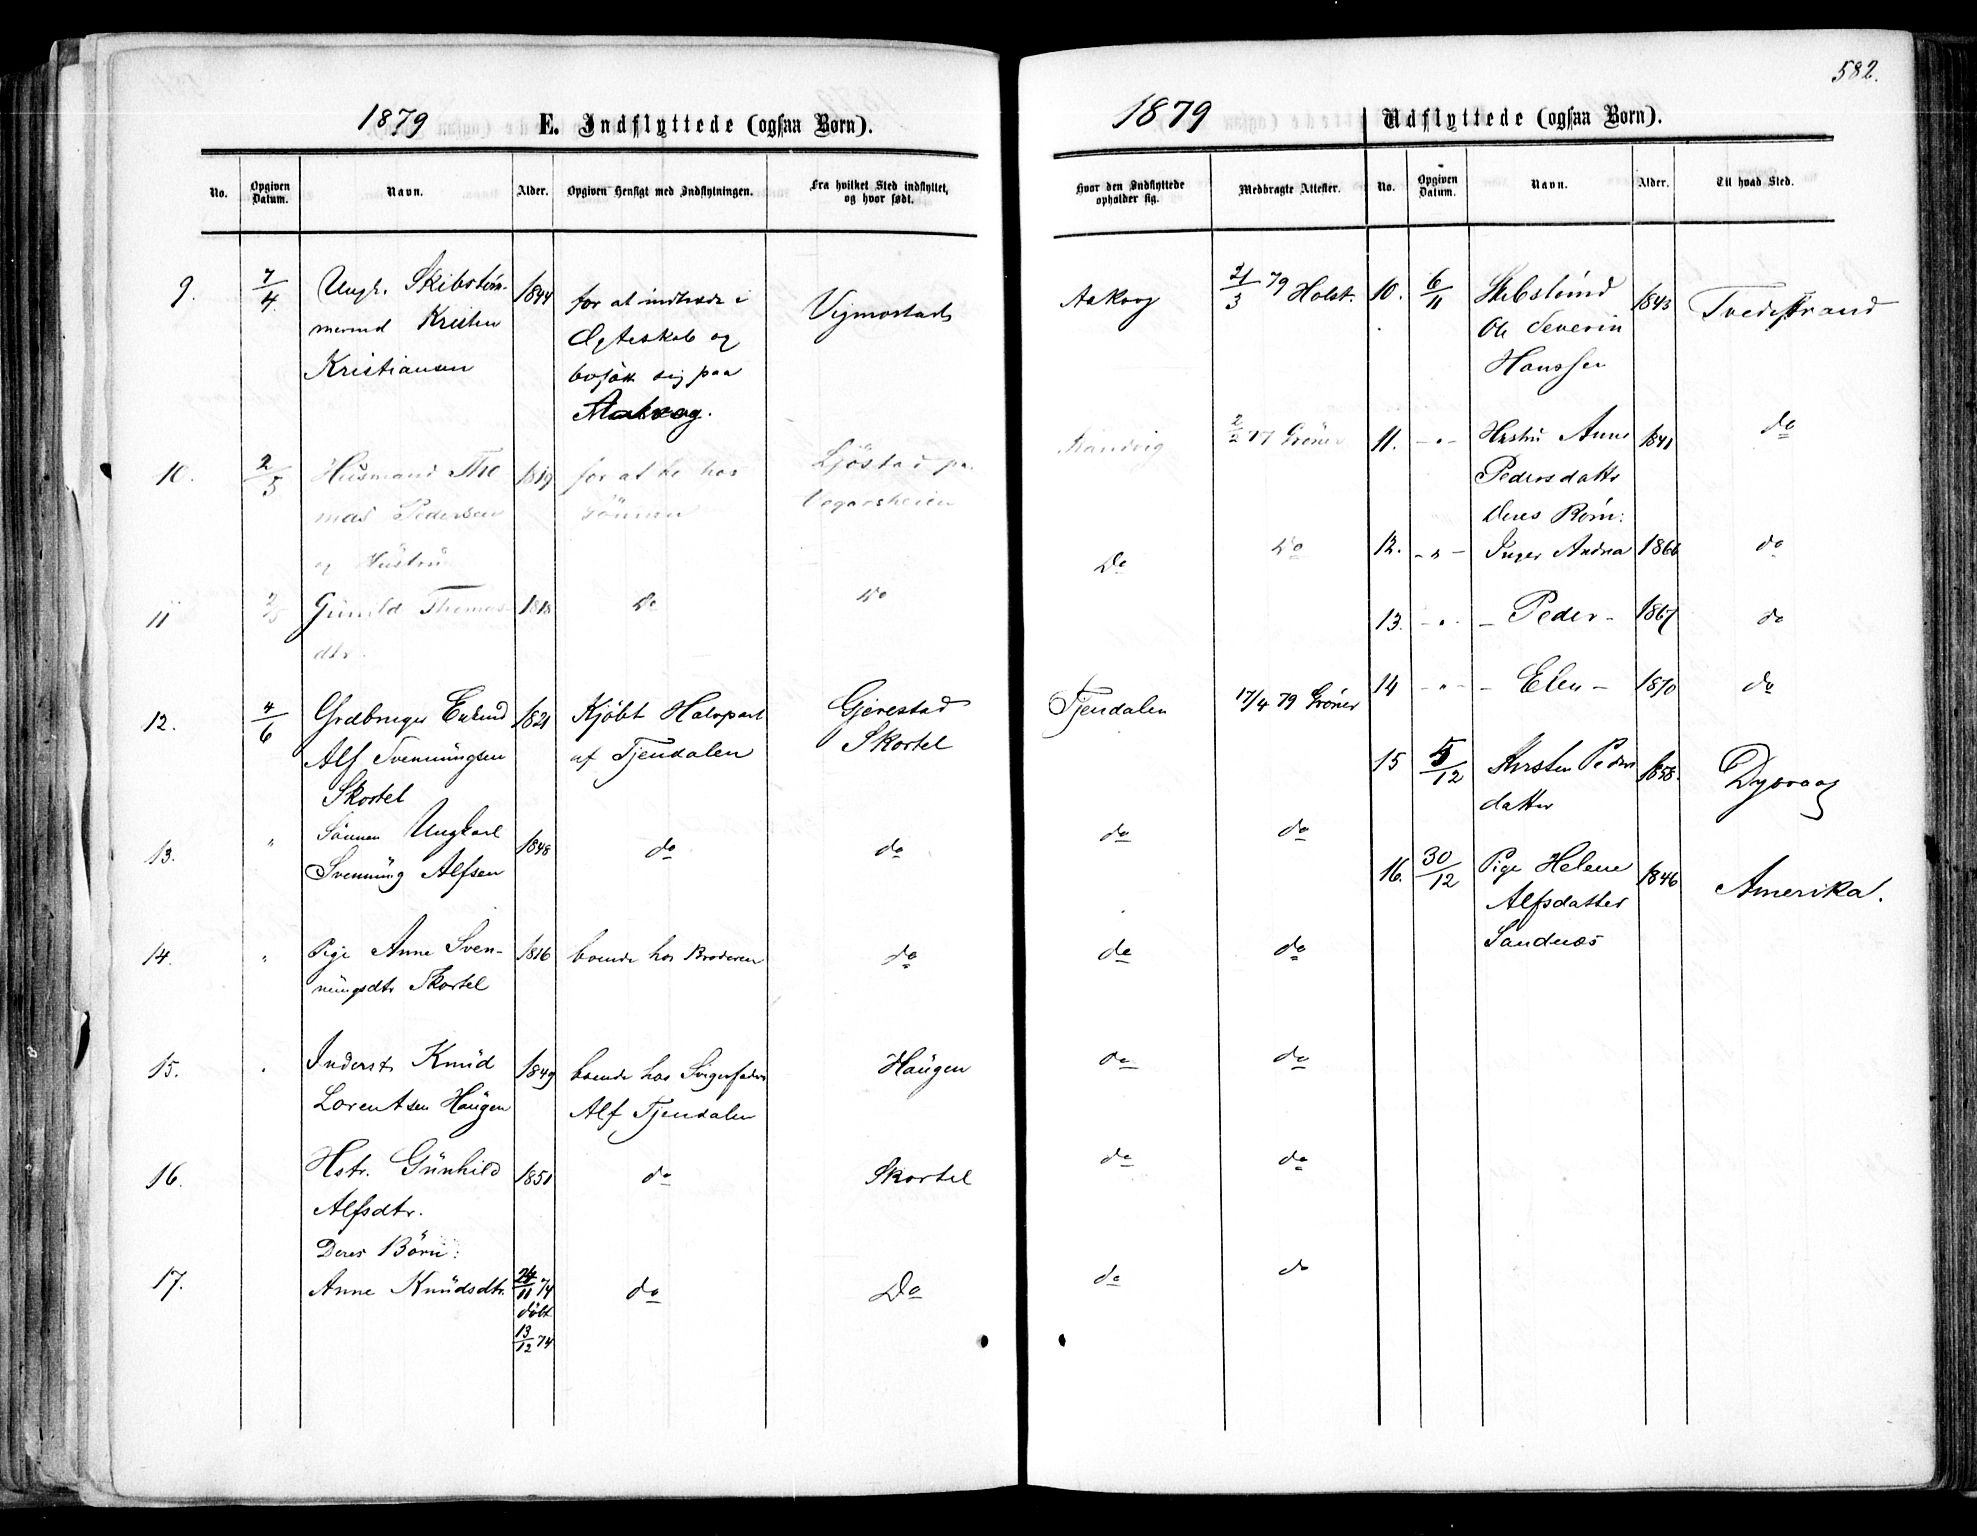 582.
1879 E. Indflyttede (ogsaa Børn).
No. Opgiven Datum. Navn. Alder. Opgiven Hensigt med Indflytningen. Fra hvilket Sted indflyttet, og hvor født.
9. 7/4 Ungk. Skibstøm- 1844 for at indtræde i Vigmostad
mermd Kristen Ægteskab og
Kristiansen bosætte sig paa
Aakvag.
10. 2/5 Husmand Tho 1819 for at bo hos Ljöstad pa.
mas Pedersen Sönnen Vegarsheien
og Hustru
11 2/5 Gunild Thomas- 1818 Do Do
dtr.
12. 4/6 Grdbruger Enkmd 1821 Kjöbt Halvpart Gjerestad
Alf Svenningsen af Tjendalen Skortel
Skortel
13. " Sönnen Ungkarl 1848 do do
Svenning Alfsen
14. " Pige Anne Sven- 1816 boende hos Broderen do
ningsdtr Skortel
15. " Inderst Knud 1849 boende hos Svigerfader Haugen
Lorentsen Haugen Alf Tjendalen
16. Hstr. Gunhild 1851 do Skortel
Alfsdtr.
Deres Börn:
17. Anne Knudsdtr. 24/11 74 do Do
döbt
13/12 74
1879 Udflyttede (ogsaa Børn).
Hvor den Indflyttede opholder sig. Medbragte Attester. No. Opgiven Datum. Navn. Alder. Til hvad Sted.
Aakvag 21/3 79 Holst. 10. 6/11 Skibstømd 1843 Tvedestrand
Ole Severin
Hanssen
Sandvig 2/2 77 Gröner 11. - " - Hustru Anne 1841 do
Pedersdatter
Deres Börn:
Do Do 12. - " - Inger Andrea 1866 do
13. - " - - Peder - 1867 do
Tjendalen 17/4 79 Gröner 14 - " - - Elen - 1870 do
15 5/12 Kirsten Peders 1858. Dyvaag
datter
do do
16. 30/12 Pige Helene 1846 Amerika.
Alfsdatter
Sandnæs
do do
do do
do do
do do